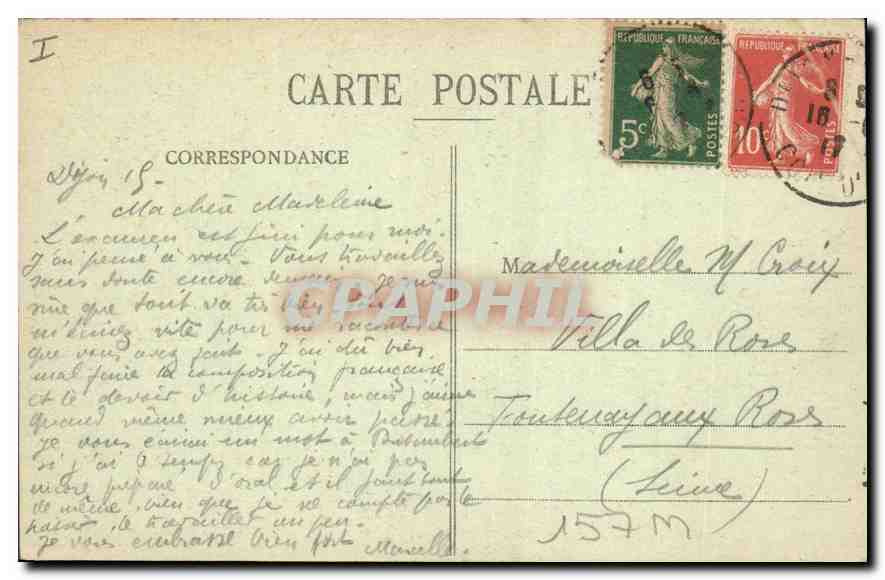 I
CARTE POSTALE
RÉPUBLIQUE FRANÇAISE
5c
POSTES
RÉPUBLIQUE FRANÇAISE
10c
POSTES
CORRESPONDANCE
Dijon 15-
Ma chère Madeleine
L'examen est fini pour moi.
J'ai pensé à vous. Vous travaillez
sans doute encore demain. Je suis
sûre que tout va très bien
m'écrivez vite pour me raconter
que vous avez fait. J'ai dû bien
mal faire la composition française
et le devoir d'histoire, mais j'aime
quand même mieux avoir passé.
Je vous écrirai un mot à
si j'ai le temps car je n'ai pas
encore préparé l'oral et il faut tout
de même, bien que je ne compte pas le
passer, le travailler un peu.
Je vous embrasse bien fort
Marcelle
Mademoiselle M Croix
Villa des Roses
Fontenay aux Roses
(Seine)
157M
CPAPHIL